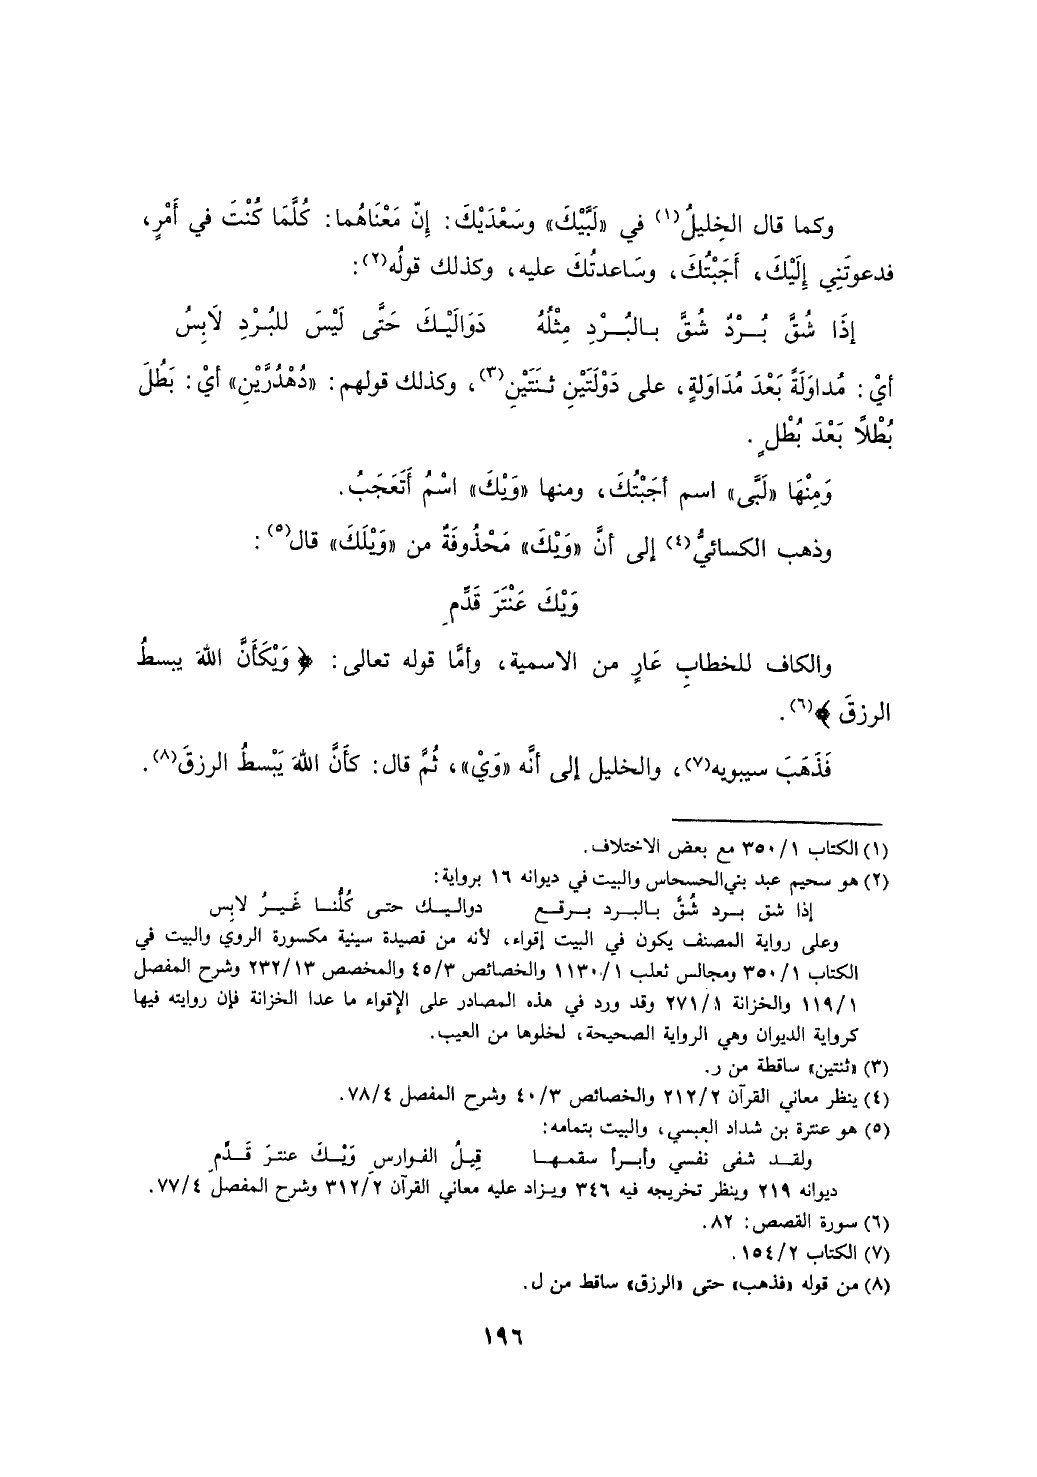 وكما قال الخليلُ(١) في «لَبَّيْكَ» وسَعْدَيْكَ: إِنّ مَعْنَاهُما: كُلَّمَا كُنْتَ في أَمْرٍ،
فدعوتَنِي إِلَيْكَ، أَجَبْتُكَ، وسَاعدتُكَ عليه، وكذلك قولُه(٢):
إِذَا شُقَّ بُرْدٌ شُقَّ بالبُرْدِ مِثْلُهُ دَوَالَيْكَ حَتَّى لَيْسَ للبُرْدِ لَابِسُ
أيْ: مُداوَلَةً بَعْدَ مُدَاوَلةٍ، على دَوْلَتَيْنِ ثنَتَيْنِ(٣)، وكذلك قولهم: «دُهْدُرَّيْنِ» أيْ: بَطُلَ
بُطْلاً بَعْدَ بُطْلٍ.
وَمِنْهَا «لَبَّى» اسم أجَبْتُكَ، ومنها «وَيْكَ» اسْمُ أَتَعَجَبُ.
وذهب الكسائيُّ(٤) إلى أنَّ «وَيْكَ» مَحْذُوفَةٌ من «وَيْلَكَ» قال(٥):
وَيْكَ عَنْتَرَ قَدِّمِ
والكاف للخطابِ عَارٍ من الاسمية، وأمَّا قوله تعالى: ﴿ وَيْكَأَنَّ اللهَ يبسطُ
الرزقَ ﴾(٦).
فَذَهَبَ سيبويه(٧)، والخليل إلى أنَّه «وَيْ»، ثُمَّ قال: كأَنَّ اللهَ يَبْسطُ الرزقَ(٨).
(١) الكتاب ٣٥٠/١ مع بعض الاختلاف.
(٢) هو سحيم عبد بني الحسحاس والبيت في ديوانه ١٦ برواية:
إذا شق برد شُقَّ بالبرد برقع دواليك حتى كُلُّنا غَيرُ لابِس
وعلى رواية المصنف يكون في البيت إقواء، لأنه من قصيدة سينية مكسورة الروي والبيت في
الكتاب ٣٥٠/١ ومجالس ثعلب ١١٣٠/١ والخصائص ٤٥/٣ والمخصص ٢٣٢/١٣ وشرح المفصل
١١٩/١ والخزانة ٢٧١/١ وقد ورد في هذه المصادر على الإقواء ما عدا الخزانة فإن روايته فيها
كرواية الديوان وهي الرواية الصحيحة، لخلوها من العيب.
(٣) «ثنتين» ساقطة من ر.
(٤) ينظر معاني القرآن ٢١٢/٢ والخصائص ٤٠/٣ وشرح المفصل ٧٨/٤.
(٥) هو عنترة بن شداد العبسي، والبيت بتمامه:
ولقد شفى نفسي وأبرأ سقمها قيلُ الفوارسِ وَيْكَ عنترَ قَدِّمِ
ديوانه ٢١٩ وينظر تخريجه فيه ٣٤٦ ويزاد عليه معاني القرآن ٣١٢/٢ وشرح المفصل ٧٧/٤.
(٦) سورة القصص: ٨٢.
(٧) الكتاب ١٥٤/٢.
(٨) من قوله «فذهب» حتى «الرزق» ساقط من ل.
١٩٦